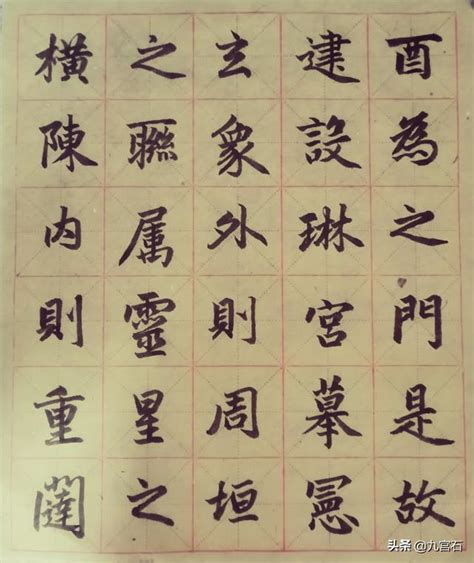 酉為之門是故
建設琳宮摹憲
玄象外則周垣
之聯属靈星之
橫陳内則重闥
头条 @九宫石